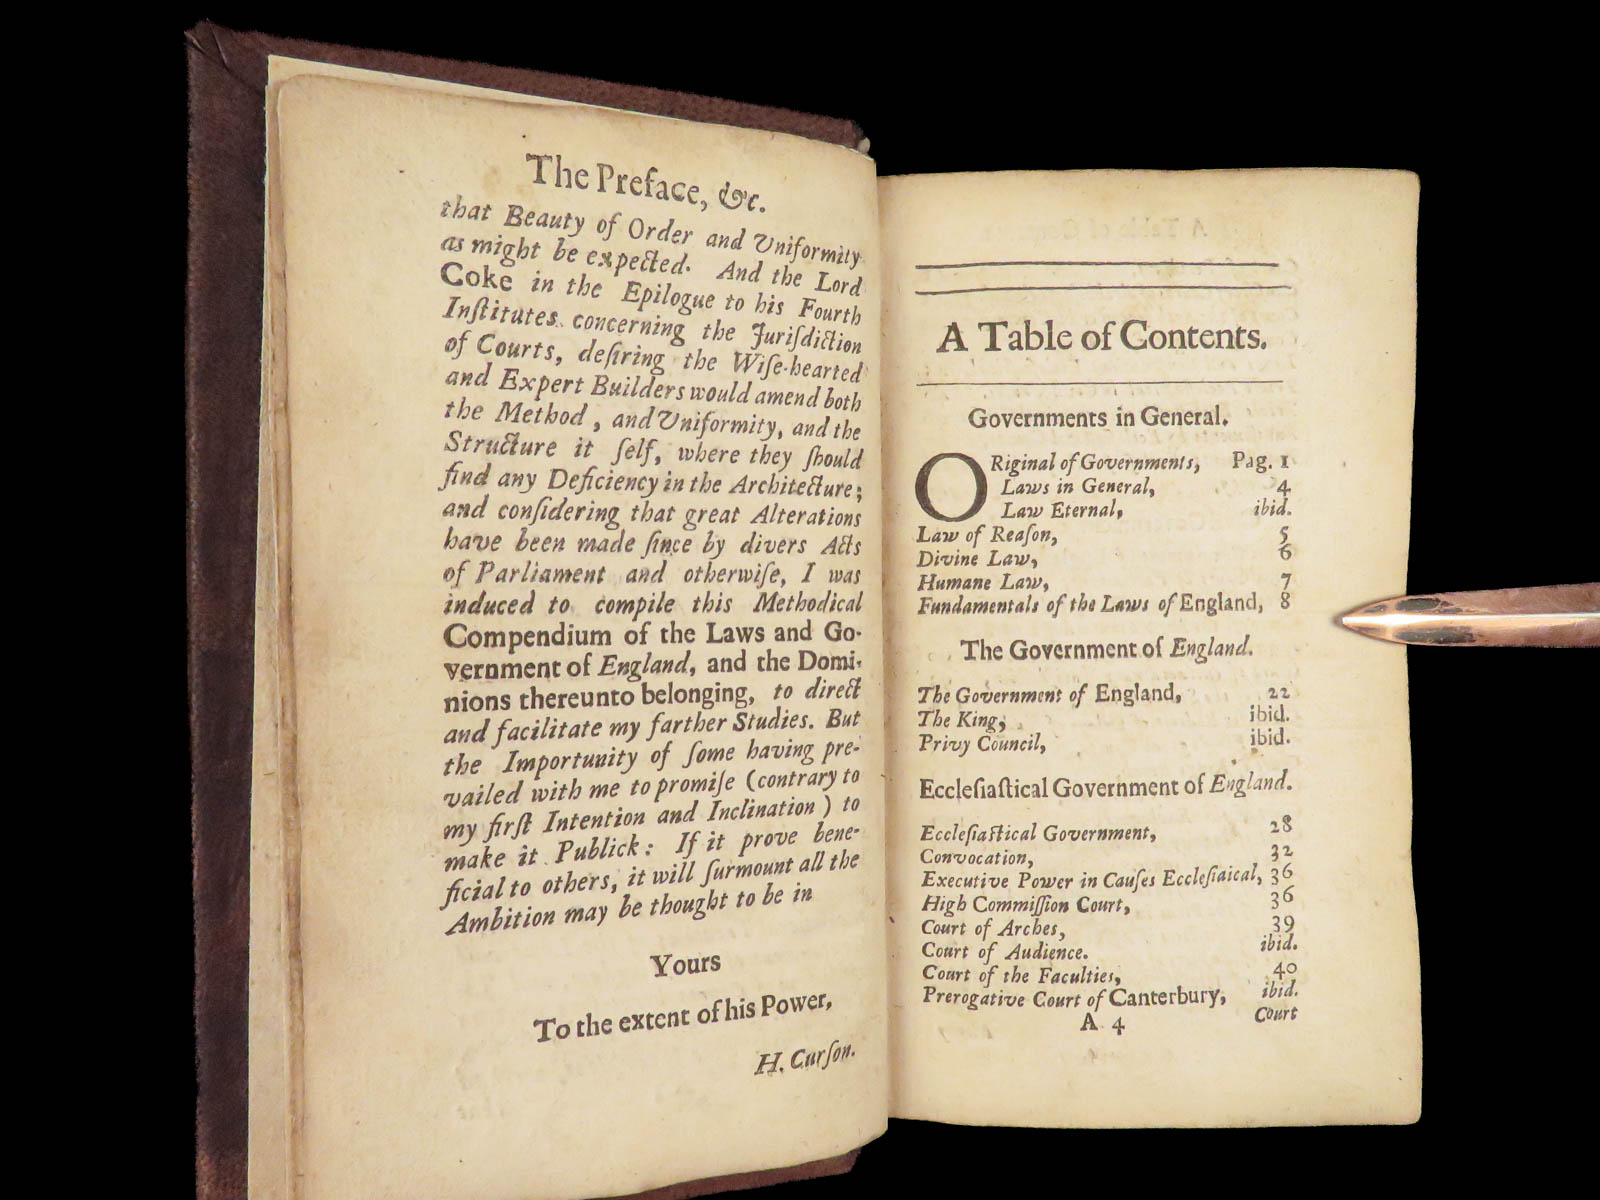 The Preface, &c.
that Beauty of Order and Uniformity
as might be expected. And the Lord
Coke in the Epilogue to his Fourth
Inſtitutes concerning the Juriſdiction
of Courts, deſiring the Wiſe-hearted
and Expert Builders would amend both
the Method, and Uniformity, and the
Structure it ſelf, where they ſhould
find any Deficiency in the Architecture;
and conſidering that great Alterations
have been made ſince by divers Acts
of Parliament and otherwiſe, I was
induced to compile this Methodical
Compendium of the Laws and Go-
vernment of England, and the Domi-
nions thereunto belonging, to direct
and facilitate my farther Studies. But
the Importunity of ſome having pre-
vailed with me to promiſe (contrary to
my firſt Intention and Inclination) to
make it Publick: If it prove bene-
ficial to others, it will ſurmount all the
Ambition may be thought to be in
Yours
To the extent of his Power,
H. Curſon.
A Table of Contents.
Governments in General.
ORiginal of Governments, Pag. 1
Laws in General, 4
Law Eternal, ibid.
Law of Reaſon, 5
Divine Law, 6
Humane Law, 7
Fundamentals of the Laws of England, 8
The Government of England.
The Government of England, 22
The King, ibid.
Privy Council, ibid.
Eccleſiaſtical Government of England.
Eccleſiaſtical Government, 28
Convocation, 32
Executive Power in Cauſes Eccleſiaical, 36
High Commiſſion Court, 36
Court of Arches, 39
Court of Audience. ibid.
Court of the Faculties, 40
Prerogative Court of Canterbury, ibid.
A 4 Court